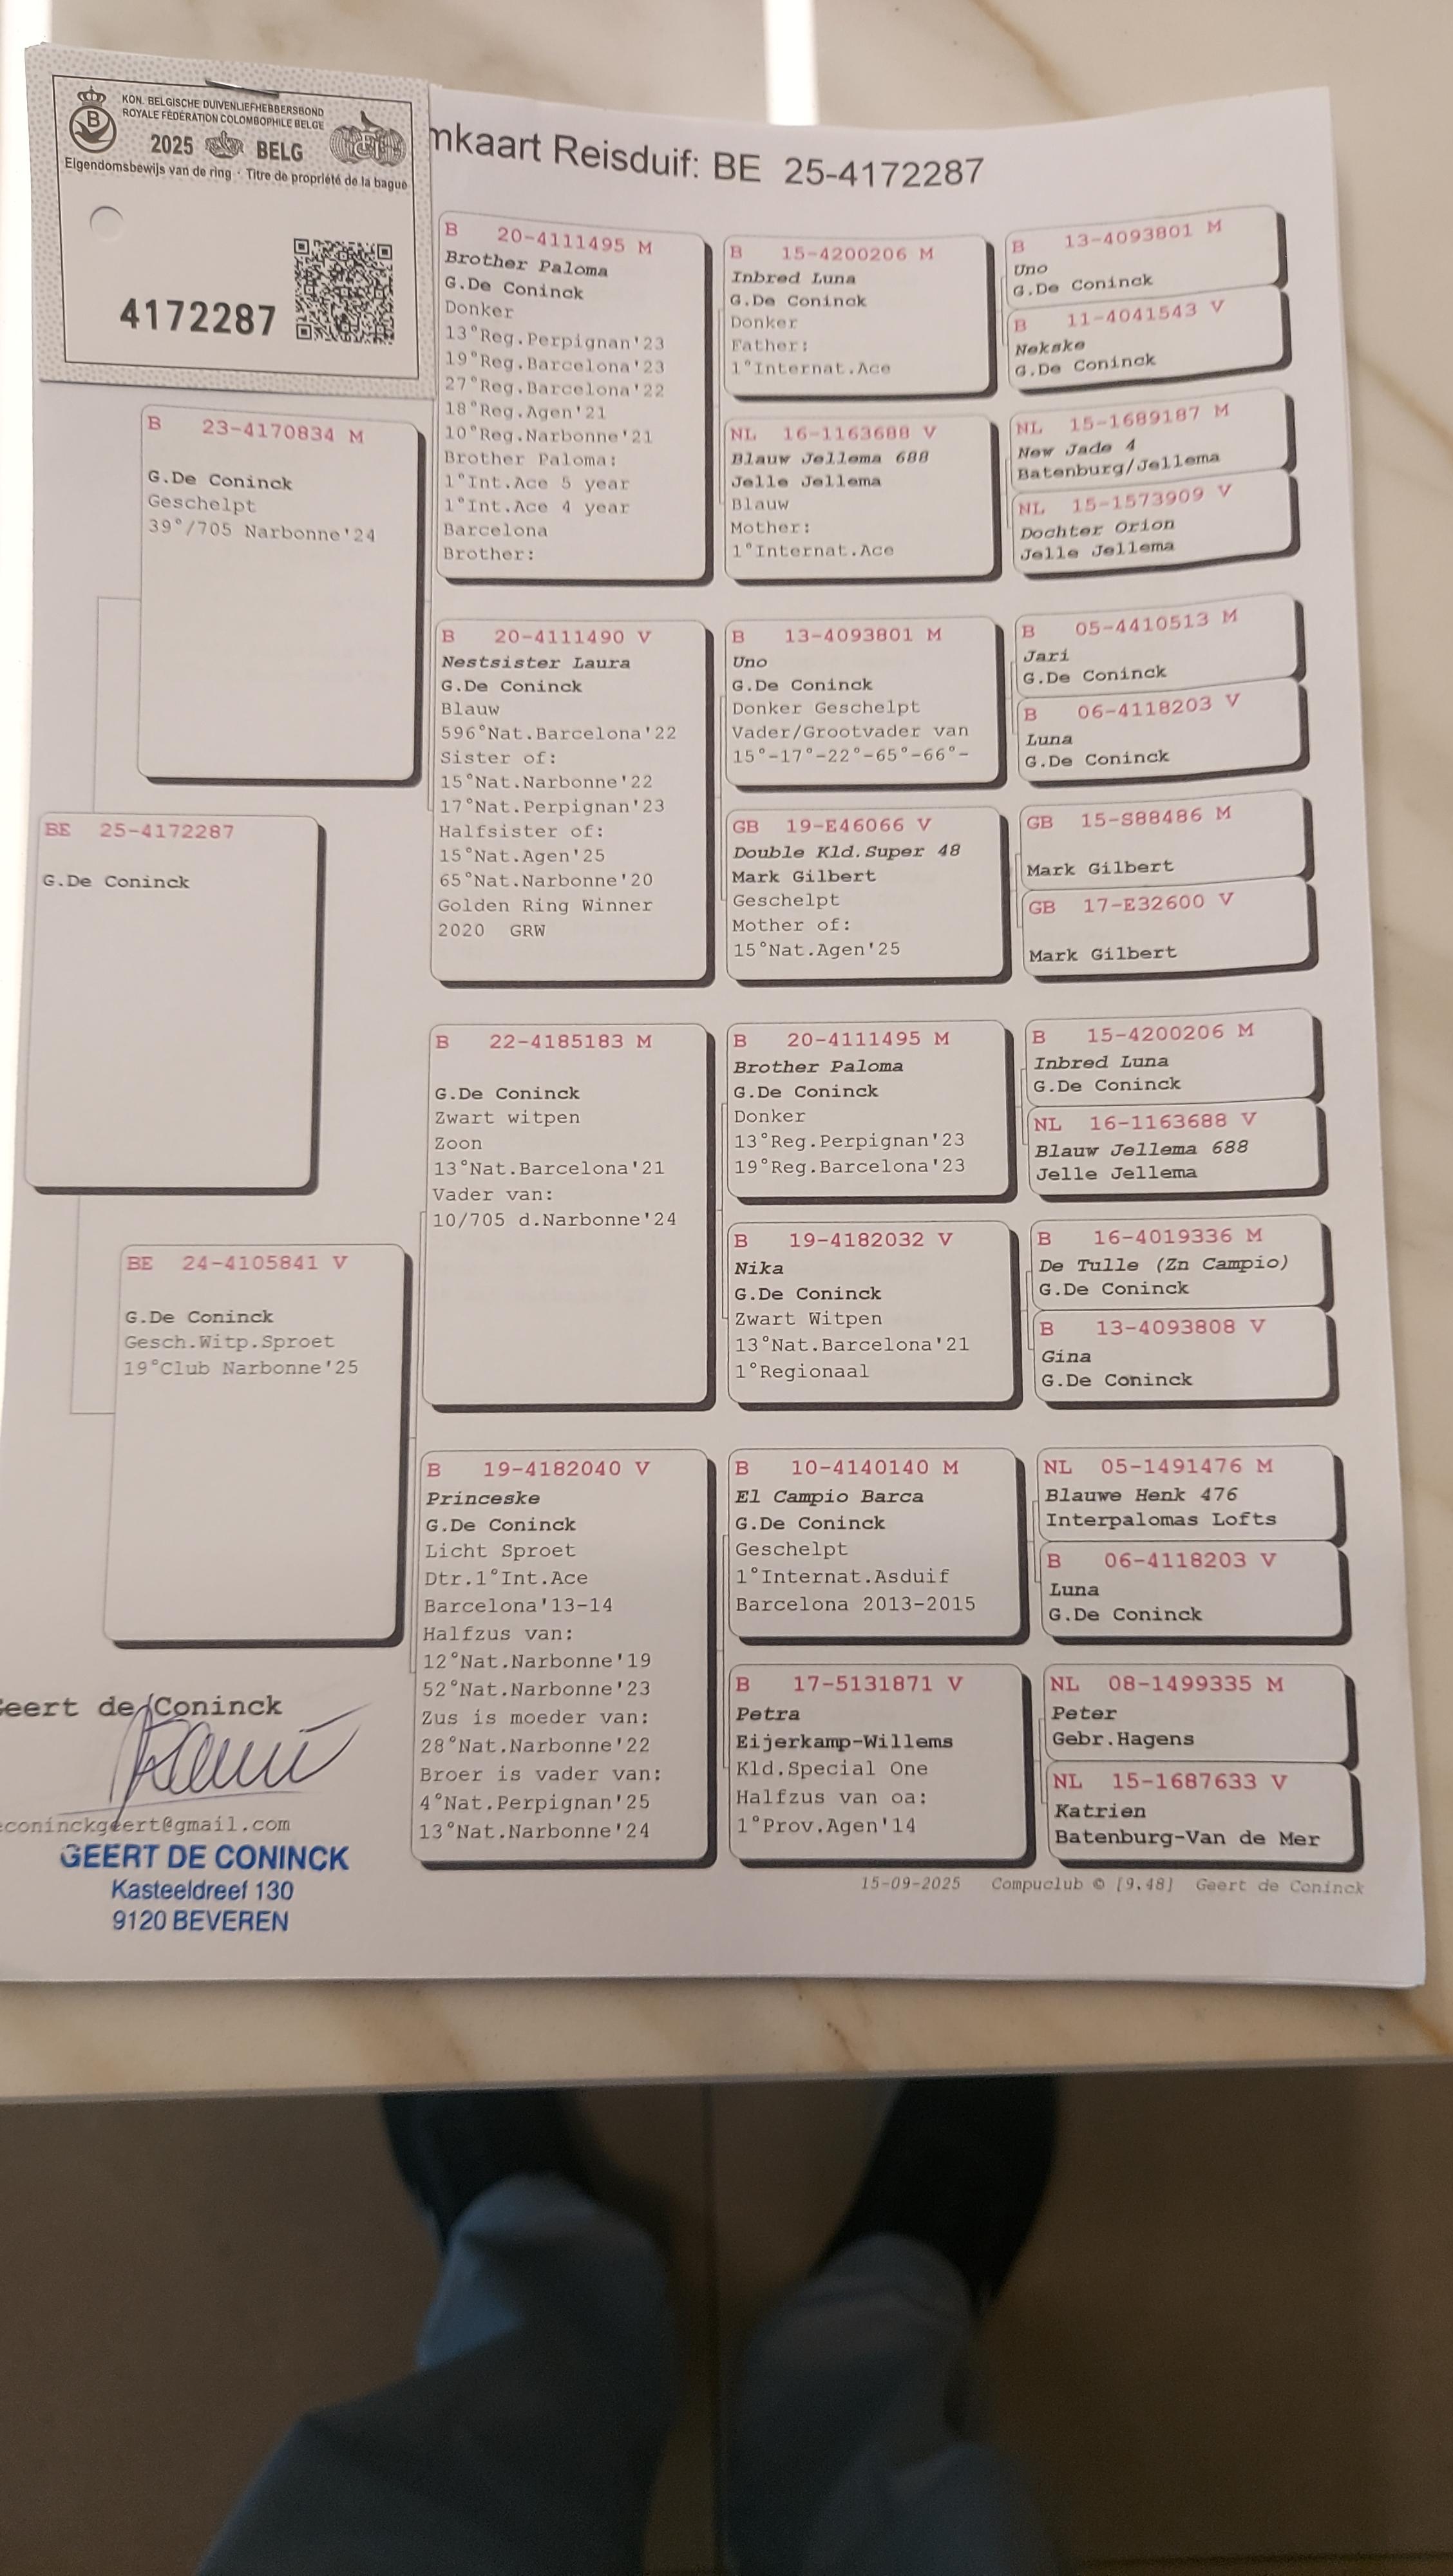 KON. BELGISCHE DUIVENLIEFHEBBERSBOND
ROYALE FÉDÉRATION COLOMBOPHILE BELGE
2025 BELG
Eigendomsbewijs van de ring · Titre de propriété de la bague
4172287
mkaart Reisduif: BE 25-4172287
B 23-4170834 M
G.De Coninck
Geschelpt
39°/705 Narbonne'24
BE 25-4172287
G.De Coninck
BE 24-4105841 V
G.De Coninck
Gesch.Witp.Sproet
19°Club Narbonne'25
B 20-4111495 M
Brother Paloma
G.De Coninck
Donker
13°Reg.Perpignan'23
19°Reg.Barcelona'23
27°Reg.Barcelona'22
18°Reg.Agen'21
10°Reg.Narbonne'21
Brother Paloma:
1°Int.Ace 5 year
1°Int.Ace 4 year
Barcelona
Brother:
B 20-4111490 V
Nestsister Laura
G.De Coninck
Blauw
596°Nat.Barcelona'22
Sister of:
15°Nat.Narbonne'22
17°Nat.Perpignan'23
Halfsister of:
15°Nat.Agen'25
65°Nat.Narbonne'20
Golden Ring Winner
2020 GRW
B 22-4185183 M
G.De Coninck
Zwart witpen
Zoon
13°Nat.Barcelona'21
Vader van:
10/705 d.Narbonne'24
B 19-4182040 V
Princeske
G.De Coninck
Licht Sproet
Dtr.1°Int.Ace
Barcelona'13-14
Halfzus van:
12°Nat.Narbonne'19
52°Nat.Narbonne'23
Zus is moeder van:
28°Nat.Narbonne'22
Broer is vader van:
4°Nat.Perpignan'25
13°Nat.Narbonne'24
B 15-4200206 M
Inbred Luna
G.De Coninck
Donker
Father:
1°Internat.Ace
NL 16-1163688 V
Blauw Jellema 688
Jelle Jellema
Blauw
Mother:
1°Internat.Ace
B 13-4093801 M
Uno
G.De Coninck
Donker Geschelpt
Vader/Grootvader van
15°-17°-22°-65°-66°-
GB 19-E46066 V
Double Kld.Super 48
Mark Gilbert
Geschelpt
Mother of:
15°Nat.Agen'25
B 20-4111495 M
Brother Paloma
G.De Coninck
Donker
13°Reg.Perpignan'23
19°Reg.Barcelona'23
B 19-4182032 V
Nika
G.De Coninck
Zwart Witpen
13°Nat.Barcelona'21
1°Regionaal
B 10-4140140 M
El Campio Barca
G.De Coninck
Geschelpt
1°Internat.Asduif
Barcelona 2013-2015
B 17-5131871 V
Petra
Eijerkamp-Willems
Kld.Special One
Halfzus van oa:
1°Prov.Agen'14
B 13-4093801 M
Uno
G.De Coninck
B 11-4041543 V
Nekske
G.De Coninck
NL 15-1689187 M
New Jade 4
Batenburg/Jellema
NL 15-1573909 V
Dochter Orion
Jelle Jellema
B 05-4410513 M
Jari
G.De Coninck
B 06-4118203 V
Luna
G.De Coninck
GB 15-S88486 M
Mark Gilbert
GB 17-E32600 V
Mark Gilbert
B 15-4200206 M
Inbred Luna
G.De Coninck
NL 16-1163688 V
Blauw Jellema 688
Jelle Jellema
B 16-4019336 M
De Tulle (Zn Campio)
G.De Coninck
B 13-4093808 V
Gina
G.De Coninck
NL 05-1491476 M
Blauwe Henk 476
Interpalomas Lofts
B 06-4118203 V
Luna
G.De Coninck
NL 08-1499335 M
Peter
Gebr.Hagens
NL 15-1687633 V
Katrien
Batenburg-Van de Mer
eert de Coninck
coninckgeert@gmail.com
GEERT DE CONINCK
Kasteeldreef 130
9120 BEVEREN
15-09-2025 Compuclub © [9.48] Geert de Coninck